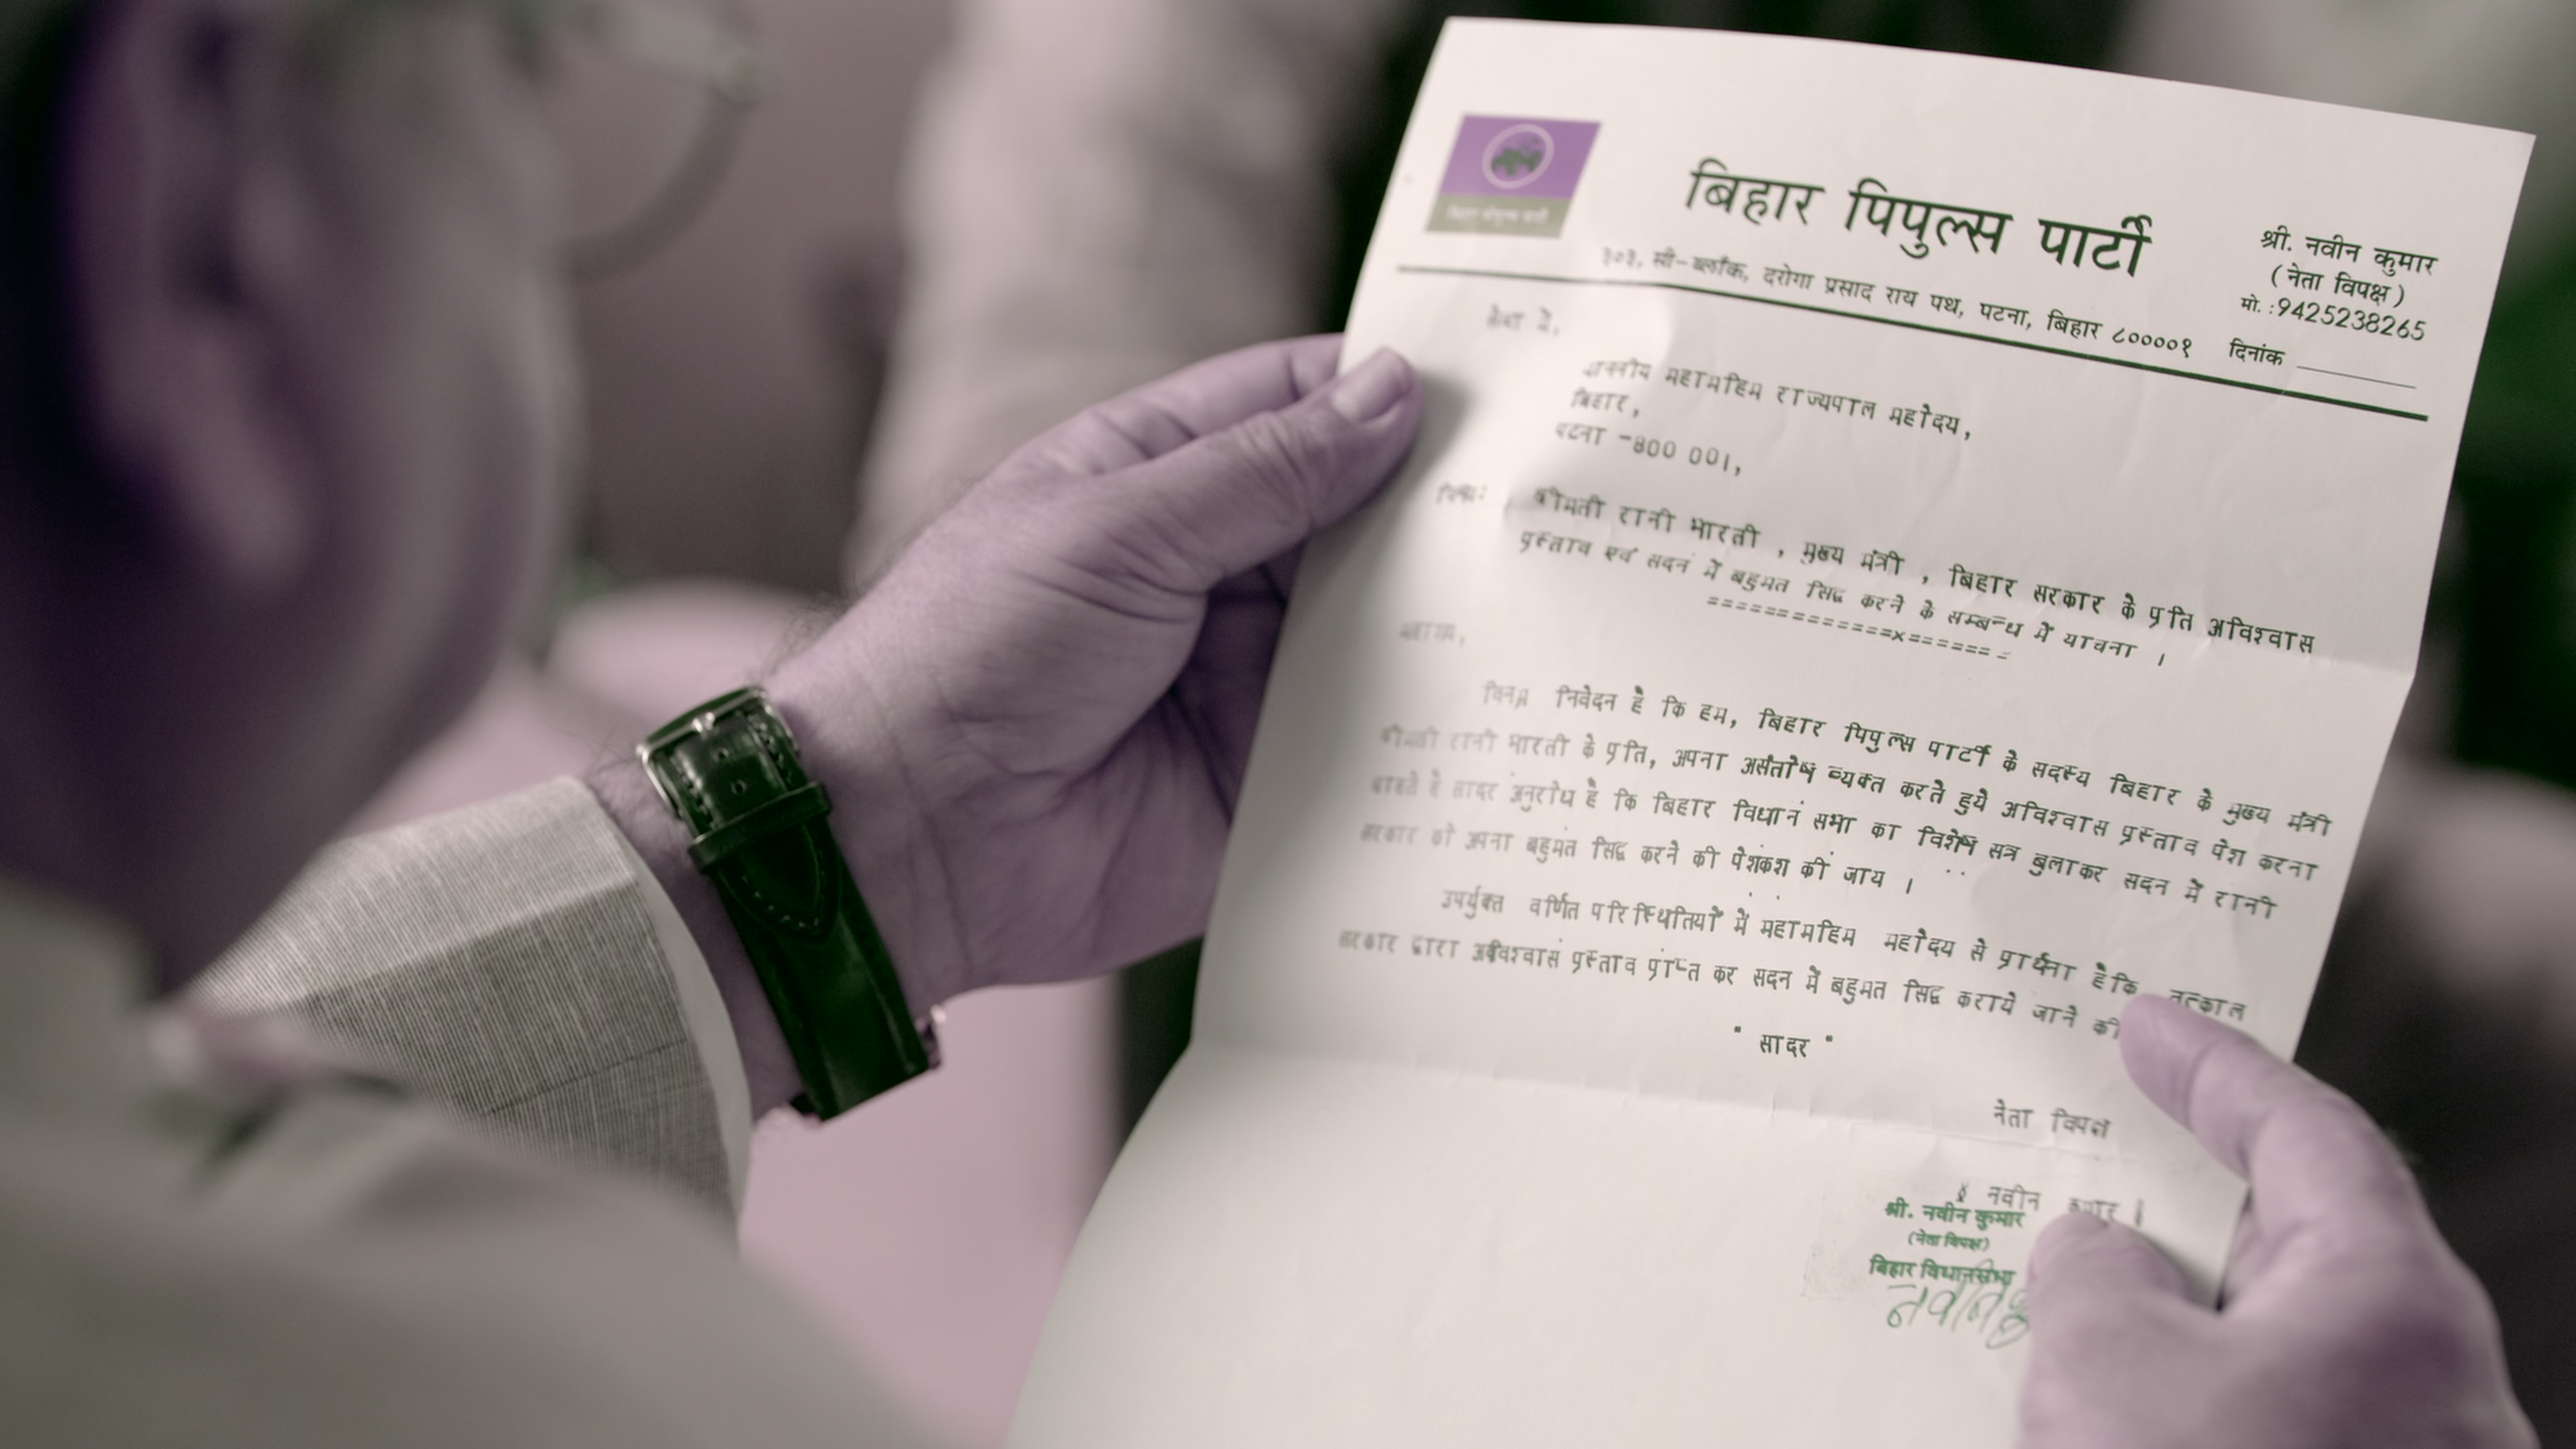 बिहार पिपुल्स पार्टी
३०३, सी-ब्लॉक, दरोगा प्रसाद राय पथ, पटना, बिहार ८००००१
श्री. नवीन कुमार
(नेता विपक्ष)
मो. :9425238265
दिनांक
सेवा में,
माननीय महामहिम राज्यपाल महोदय,
बिहार,
पटना -800 001,
विषय:
श्रीमती रानी भारती , मुख्य मंत्री , बिहार सरकार के प्रति अविश्वास
प्रस्ताव एवं सदन में बहुमत सिद्ध करने के सम्बन्ध में याचना ।
============x====== =
महाशय,
विनम्र निवेदन है कि हम, बिहार पिपुल्स पार्टी के सदस्य बिहार के मुख्य मंत्री
श्रीमती रानी भारती के प्रति, अपना असंतोष व्यक्त करते हुये अविश्वास प्रस्ताव पेश करना
चाहते है सादर अनुरोध है कि बिहार विधान सभा का विशेष सत्र बुलाकर सदन में रानी
सरकार को अपना बहुमत सिद्ध करने की पेशकश की जाय ।
उपर्युक्त वर्णित परिस्थितियों में महामहिम महोदय से प्रार्थना हैकि तत्काल
सरकार द्वारा अविश्वास प्रस्ताव प्राप्त कर सदन में बहुमत सिद्ध कराये जाने की
" सादर "
नेता विपक्ष
नवीन कुमार
श्री. नवीन कुमार
(नेता विपक्ष)
बिहार विधानसभा